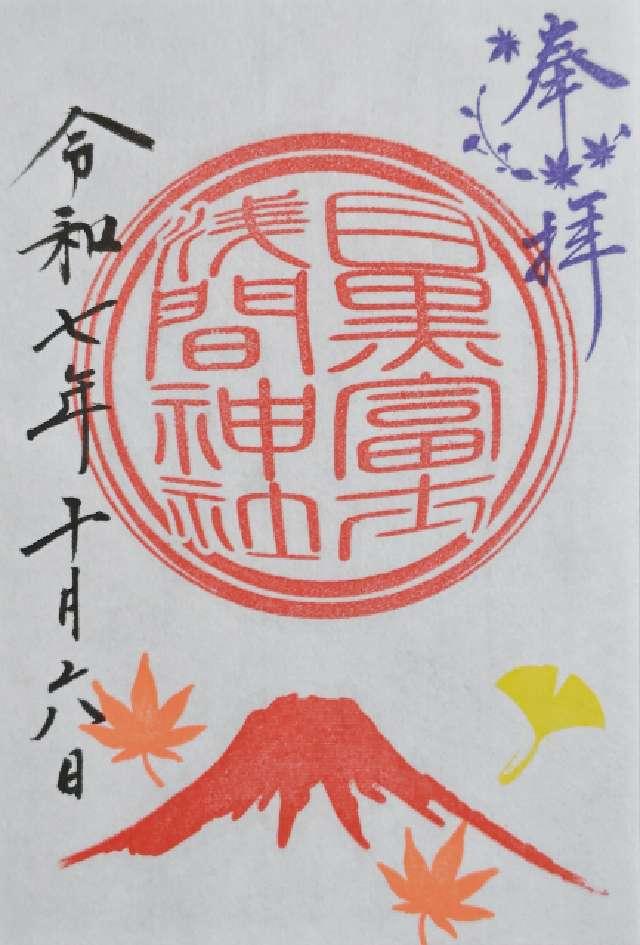 奉拝
目黒富士
浅間神社
令和七年十月六日